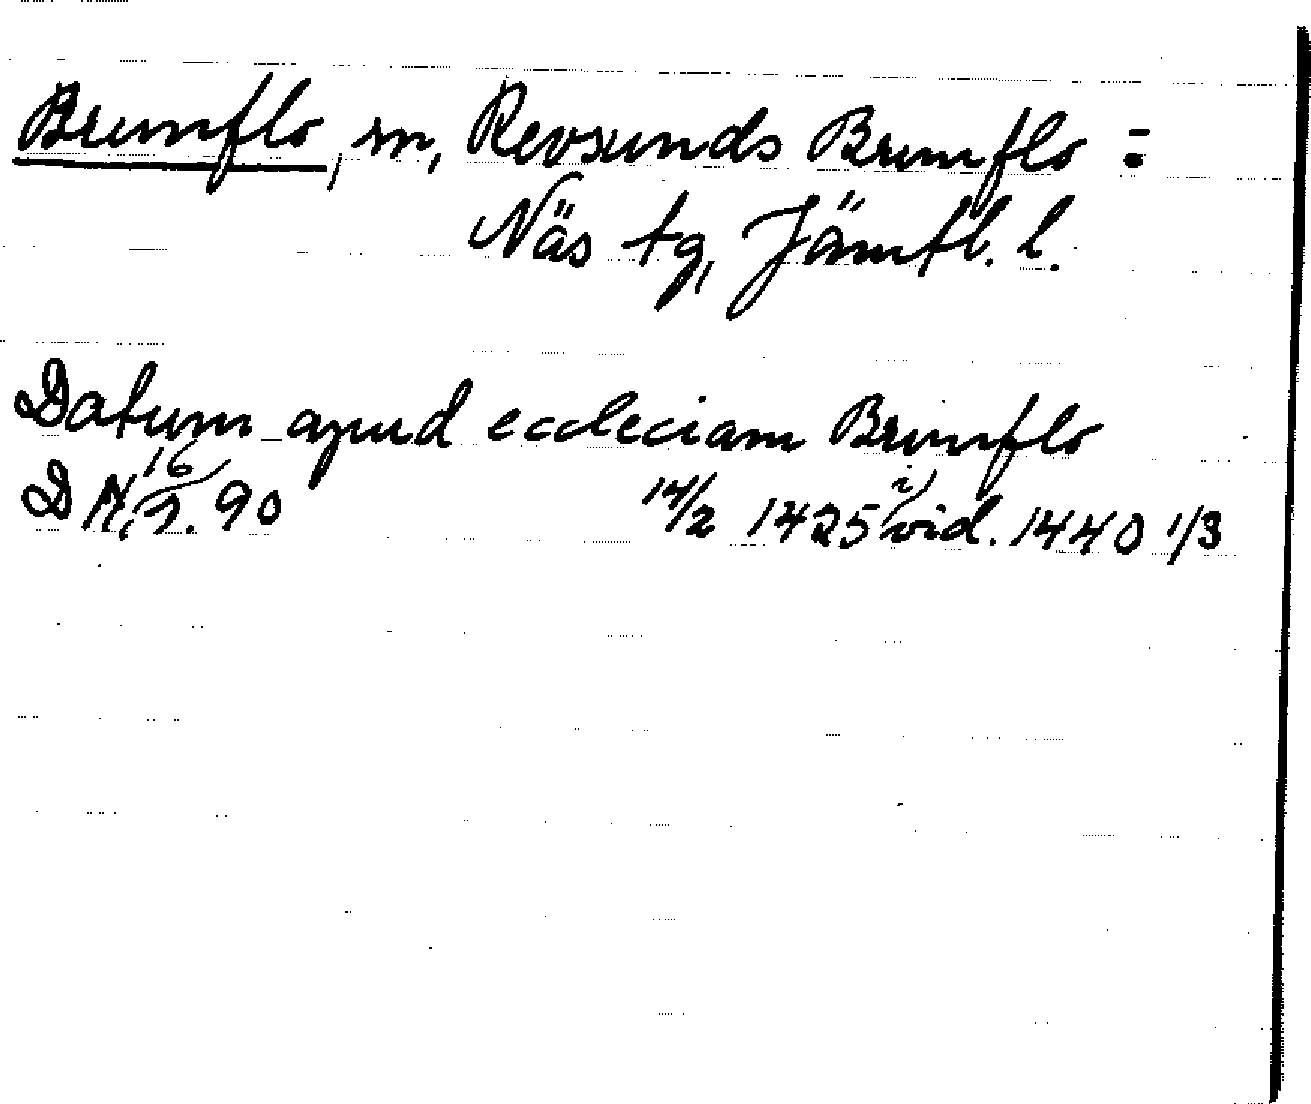 Brunflo, sn, Revsunds Brunflo =
Näs tg, Jämtl. l.
Datum apud eccleciam Brunflo
DN 16/2. 90 14/2 1425 i vid. 1440 1/3